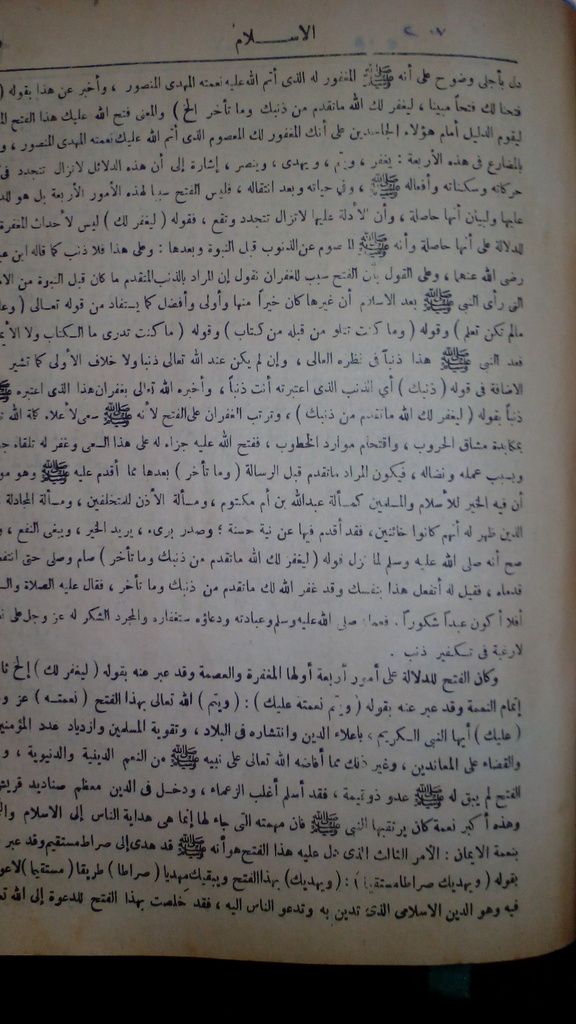 ٢٠٧
الاســـلام
دل بأجلى وضوح على أنه ﷺ المغفور له الذى أتم الله عليه نعمته المهدى المنصور ، وأخبر عن هذا بقوله (
فتحنا لك فتحاً مبينا ، ليغفر لك الله ماتقدم من ذنبك وما تأخر الخ ) والمعنى فتح الله عليك هذا الفتح
ليقوم الدليل أمام هؤلاء الجاحدين على أنك المغفور لك المعصوم الذى أتم الله عليك نعمته المهدى المنصور ،
بالمضارع فى هذه الأربعة : يغفر ، ويتم ، ويهدى ، وينصر ، إشارة إلى أن هذه الدلائل لاتزال تتجدد فى
حركاته وسكناته وأفعاله ﷺ ، وفى حياته وبعد انتقاله ، فليس الفتح سببا لهذه الأمور الأربعة بل هو
عليها ولبيان أنها حاصلة ، وأن الأدلة عليها لاتزال تتجدد وتقع ، فقوله ( ليغفر لك ) ليس لأحداث المغفرة
للدلالة على أنها حاصلة وأنه ﷺ المعصوم عن الذنوب قبل النبوة وبعدها : وعلى هذا فلا ذنب كما قاله ابن
رضى الله عنهما ، وعلى القول بأن الفتح سبب للغفران نقول إن المراد بالذنب المتقدم ما كان قبل النبوة من
التى رأى النبى ﷺ بعد الاسلام أن غيرها كان خيراً منها وأولى وأفضل كما يستفاد من قوله تعالى (
مالم تكن تعلم ) وقوله ( وما كنت تتلو من قبله من كتاب ) وقوله ( ما كنت تدرى ما الكتاب ولا
فعد النبى ﷺ هذا ذنباً فى نظره العالى ، وإن لم يكن عند الله تعالى ذنبا ولا خلاف الأولى كما تشير
الاضافة فى قوله ( ذنبك ) أى الذنب الذى اعتبرته أنت ذنباً ، وأخبره الله تعالى بغفران هذا الذى اعتبره ﷺ
ذنباً بقوله ( ليغفر لك الله ماتقدم من ذنبك ) ، وترتب الغفران على الفتح لأنه ﷺ سعى لأعلاء كلمة الله
بمكابدة مشاق الحروب ، واقتحام موارد الخطوب ، ففتح الله عليه جزاء له على هذا السعى وغفر له تلقاء
وبسبب عمله ونضاله ، فيكون المراد ماتقدم قبل الرسالة ( وما تأخر ) بعدها مما أقدم عليه ﷺ وهو
أن فيه الخير للأسلام والمسلمين كمسألة عبدالله بن أم مكتوم ، ومسألة الأذن للمتخلفين ، ومسألة المجادلة
الذين ظهر له أنهم كانوا خائنين ، فقد أقدم فيها عن نية حسنة ؛ وصدر برىء ، يريد الخير ، ويبغى النفع ،
صح أنه صلى الله عليه وسلم لما نزل قوله ( ليغفر لك الله ماتقدم من ذنبك وما تأخر ) صام وصلى حتى
قدماه ، فقيل له أتفعل هذا بنفسك وقد غفر الله لك ماتقدم من ذنبك وما تأخر ، فقال عليه الصلاة
أفلا أكون عبداً شكوراً . فعمله صلى الله عليه وسلم وعبادته ودعاؤه ستغفاره والمجرد الشكر له عز وجل على
لارغبة فى تكفير ذنب .
وكان الفتح للدلالة على أمور أربعة أولها المغفرة والعصمة وقد عبر عنه بقوله ( ليغفر لك ) إلخ
إتمام النعمة وقد عبر عنه بقوله ( ويتم نعمته عليك ) : ( ويتم ) الله تعالى بهذا الفتح ( نعمتـه ) عز
( عليك ) أيها النبى الكريم ، باعلاء الدين وانتشاره فى البلاد ، وتقوية المسلمين وازدياد عدد
والقضاء على المعاندين ، وغير ذلك مما أفاضه الله تعالى على نبيه ﷺ من النعم الدينية والدنيوية ،
الفتح لم يبق له ﷺ عدو ذو قيمة ، فقد أسلم أغلب الزعماء ، ودخل فى الدين معظم صناديد
وهذه أكبر نعمة كان يرتقبها النبى ﷺ فان مهمته التى جاء لها إنما هى هداية الناس إلى الاسلام
بنعمة الايمان : الأمر الثالث الذى دل عليه هذا الفتح هو أنه ﷺ قد هدى إلى صراط مستقيم وقد عبر
بقوله ( ويهديك صراطا مستقيما ) : ( ويهديك ) بهذا الفتح ويبقيك مهديا ( صراطا ) طريقا ( مستقيما )
فيه وهو الدين الاسلامى الذى تدين به وتدعو الناس اليه ، فقد خلصت بهذا الفتح للدعوة إلى الله